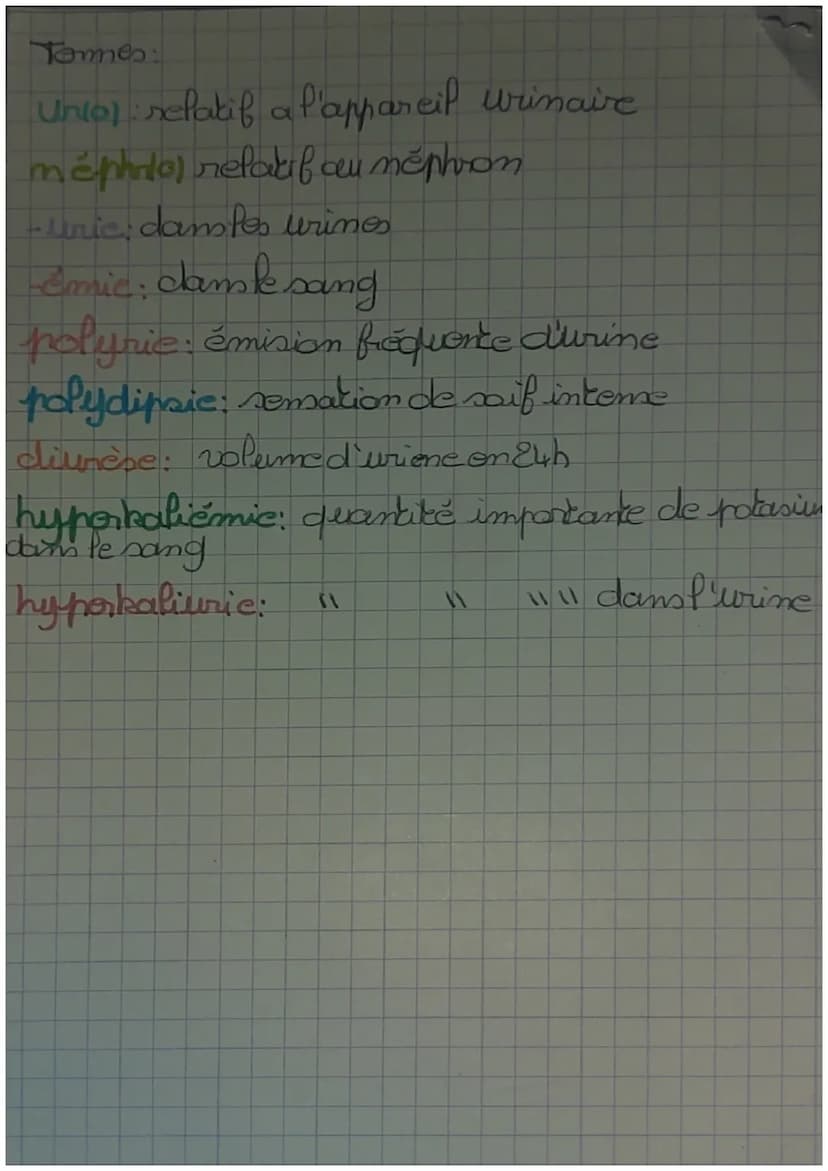 Termes:
Ur(o) : relatif a l'appareil urinaire
néphr(o) relatif au néphron
-urie: dans les urines
-émie: dans le sang
polyrie: émision fréquente d'urine
polydipsie: sensation de soif intense
diurèse: volume d'uriene en 24h
hyperkaliémie: quantité importante de potasium
dans le sang
hyperkaliurie: " " "" dans l'urine